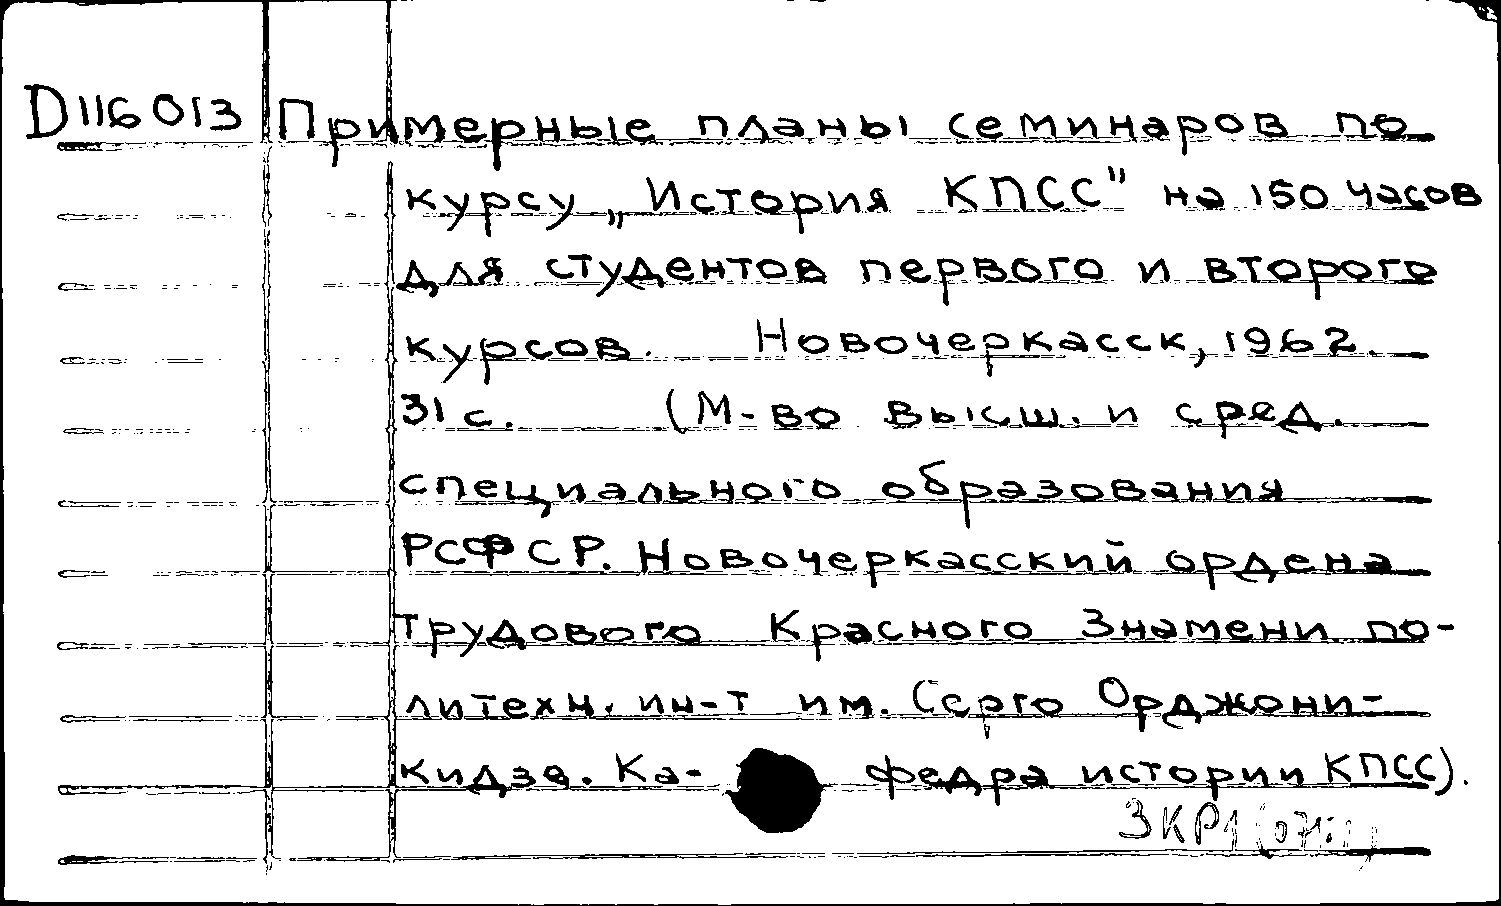 D116013 Примерные планы семинаров по
курсу „История КПСС" на 150 часов
для студентов первого и второго
курсов. Новочеркасск, 1962.
31 с. (М-во высш. и сред.
специального образования
РСФСР. Новочеркасский ордена
Трудового Красного Знамени по-
литехн. ин-т им. Серго Орджони-
кидзе. Ка- федра истории КПСС).
3КР1